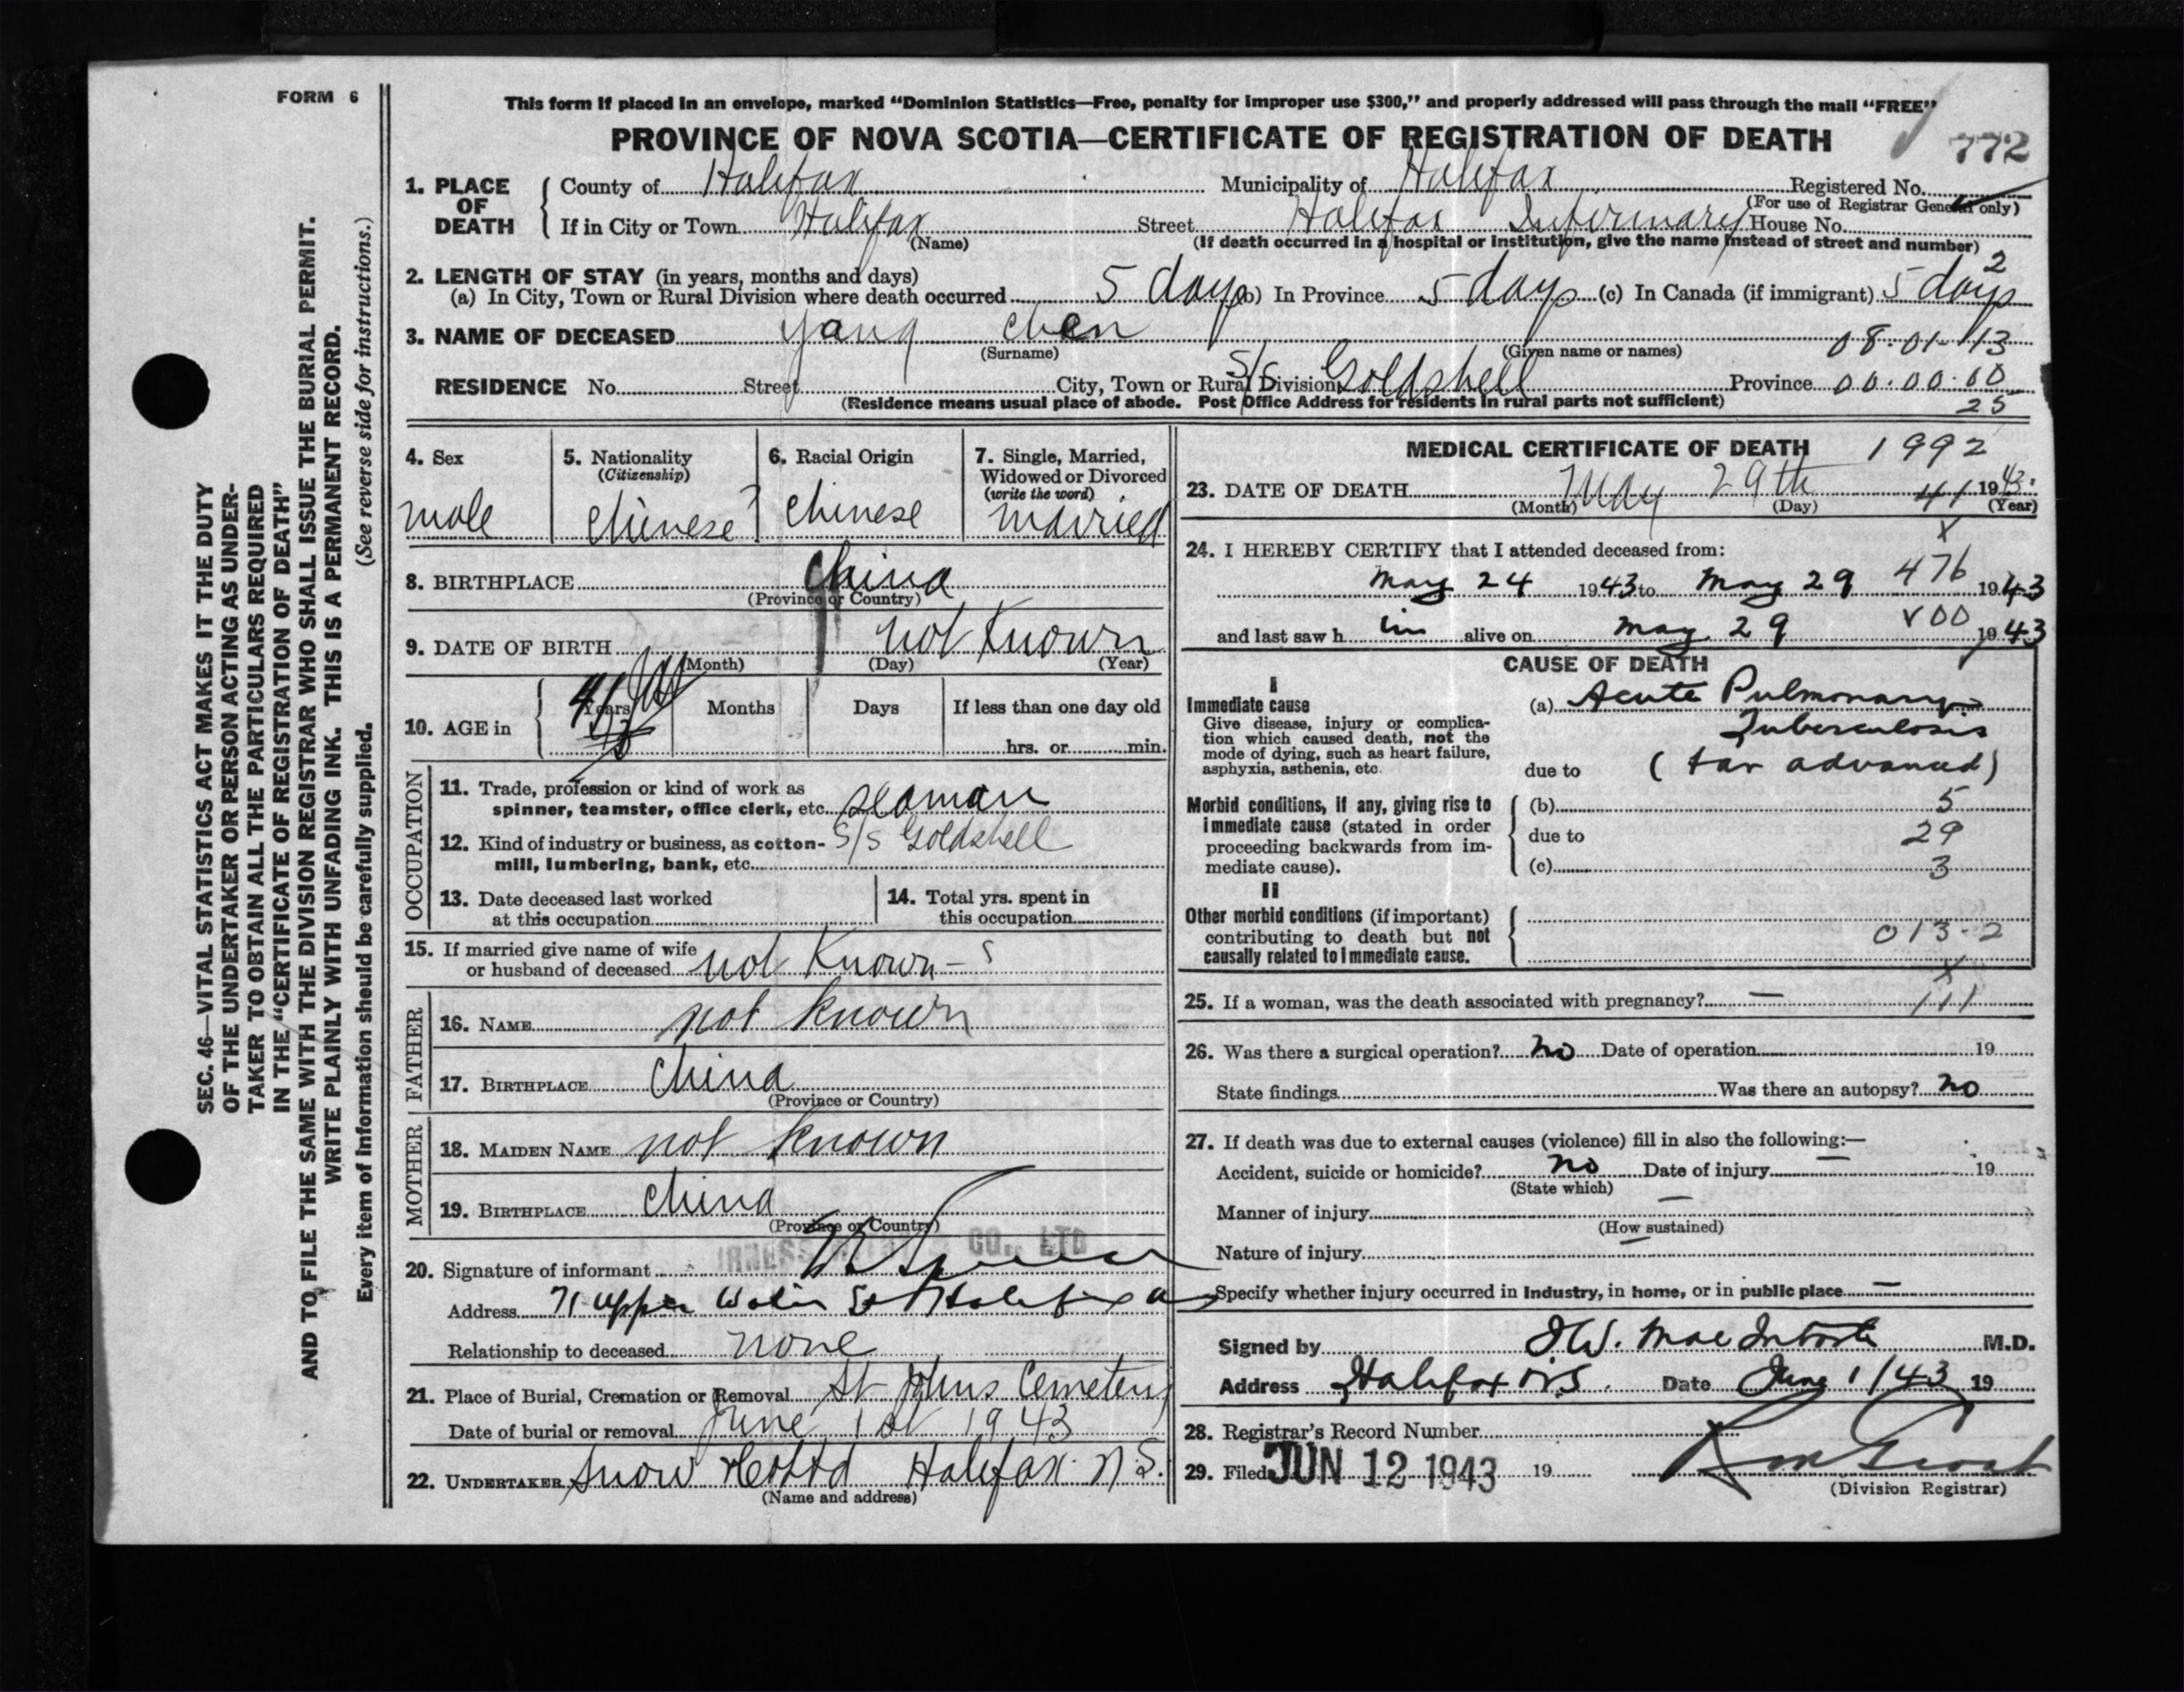 FORM 6
This form if placed in an envelope, marked "Dominion Statistics—Free, penalty for improper use $300," and properly addressed will pass through the mail "FREE"
PROVINCE OF NOVA SCOTIA—CERTIFICATE OF REGISTRATION OF DEATH
772
1. PLACE OF DEATH
County of Halifax Municipality of Halifax Registered No.
(For use of Registrar General only)
If in City or Town Halifax Street Halifax Infirmary House No.
(Name) (If death occurred in a hospital or institution, give the name instead of street and number)
2. LENGTH OF STAY (in years, months and days) 2
(a) In City, Town or Rural Division where death occurred 5 days (b) In Province 5 days (c) In Canada (if immigrant) 5 days
3. NAME OF DECEASED yang chen
(Surname) (Given name or names) 08-01-13
RESIDENCE No. Street City, Town or Rural Division S/S Goldshell Province 00.00.60
(Residence means usual place of abode. Post Office Address for residents in rural parts not sufficient) 25
4. Sex
male
5. Nationality
(Citizenship)
Chinese
6. Racial Origin
Chinese
7. Single, Married,
Widowed or Divorced
(write the word)
married
8. BIRTHPLACE China
(Province or Country)
9. DATE OF BIRTH not Known
(Month) (Day) (Year)
10. AGE in
Years Months Days If less than one day old
hrs. or min.
OCCUPATION
11. Trade, profession or kind of work as
spinner, teamster, office clerk, etc. seaman
12. Kind of industry or business, as cotton- S/S Goldshell
mill, lumbering, bank, etc.
13. Date deceased last worked
at this occupation
14. Total yrs. spent in
this occupation
15. If married give name of wife
or husband of deceased not Known
FATHER
16. NAME not known
17. BIRTHPLACE China
(Province or Country)
MOTHER
18. MAIDEN NAME not known
19. BIRTHPLACE China
(Province or Country)
CO., LTD
20. Signature of informant
Address 71 upper Water St Halifax
Relationship to deceased none
21. Place of Burial, Cremation or Removal St Johns Cemetery
Date of burial or removal June 1st 1943
22. UNDERTAKER Snow & Co Ltd Halifax N.S.
(Name and address)
MEDICAL CERTIFICATE OF DEATH 1992
23. DATE OF DEATH May 29th 41 1943
(Month) (Day) (Year)
X
24. I HEREBY CERTIFY that I attended deceased from:
May 24 1943 to May 29 476 1943
and last saw h im alive on May 29 V00 1943
CAUSE OF DEATH
I
Immediate cause (a) Acute Pulmonary
Give disease, injury or complica-
tion which caused death, not the Tuberculosis
mode of dying, such as heart failure,
asphyxia, asthenia, etc. due to (far advanced)
Morbid conditions, if any, giving rise to (b) 5
immediate cause (stated in order
proceeding backwards from im- due to 29
mediate cause). (c) 3
II
Other morbid conditions (if important)
contributing to death but not 013-2
causally related to immediate cause.
X
25. If a woman, was the death associated with pregnancy? — 111
26. Was there a surgical operation? No Date of operation 19
State findings Was there an autopsy? no
27. If death was due to external causes (violence) fill in also the following:—
Accident, suicide or homicide? no Date of injury — 19
(State which)
Manner of injury —
(How sustained)
Nature of injury —
Specify whether injury occurred in industry, in home, or in public place —
Signed by J.W. MacIntosh M.D.
Address Halifax N.S. Date June 1/43 19
28. Registrar's Record Number
29. Filed JUN 12 1943 19
(Division Registrar)
SEC. 46—VITAL STATISTICS ACT MAKES IT THE DUTY
OF THE UNDERTAKER OR PERSON ACTING AS UNDER-
TAKER TO OBTAIN ALL THE PARTICULARS REQUIRED
IN THE "CERTIFICATE OF REGISTRATION OF DEATH"
AND TO FILE THE SAME WITH THE DIVISION REGISTRAR WHO SHALL ISSUE THE BURIAL PERMIT.
WRITE PLAINLY WITH UNFADING INK. THIS IS A PERMANENT RECORD.
Every item of information should be carefully supplied. (See reverse side for instructions.)